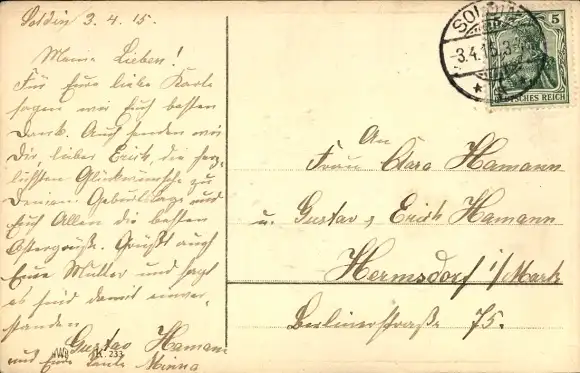 Soldin 3.4.15.
Meine Lieben!
Für Eure liebe Karte
sagen wir Euch besten
Dank. Auch senden wir
Dir, lieber Erich, die herz-
lichsten Glückwünsche zu
Deinem Geburtstage und
Euch Allen die besten
Ostergrüße. Grüßt auch
Eure Mutter und sagt
es sind damit einver-
standen
Gustav Hamann
und Eure Tante Minna
WB K. 233
SOLDIN
3.4.15.3
5
DEUTSCHES REICH
An
Frau Clara Hamann
u. Gustav, Erich Hamann
Hermsdorf i/Mark
Berlinerstraße 75.